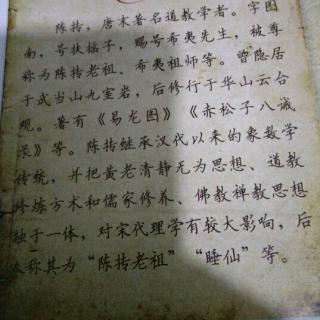 陈抟，唐末著名道教学者。字图
南，号扶摇子，赐号希夷先生，被尊
称为陈抟老祖、希夷祖师等。曾隐居
于武当山九室岩，后修行于华山云台
观。著有《易龙图》《赤松子八诫
录》等。陈抟继承汉代以来的象数学
传统，并把黄老清静无为思想、道教
修炼方术和儒家修养、佛教禅教思想
独于一体，对宋代理学有较大影响，后
人称其为“陈抟老祖”“睡仙”等。